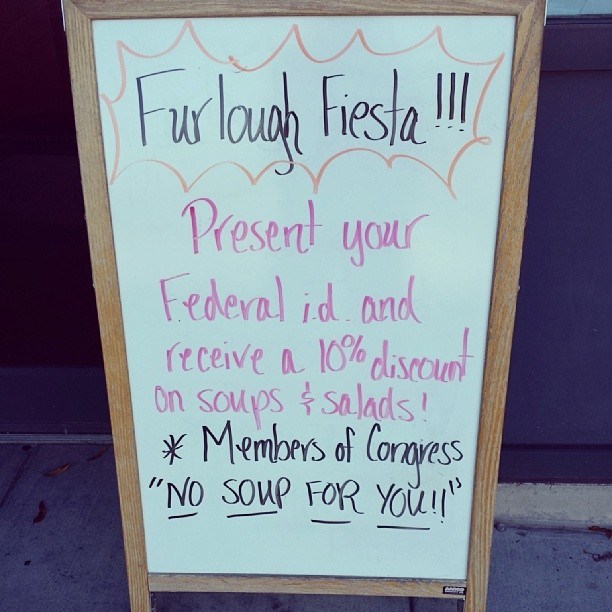 Furlough Fiesta!!!
Present your
Federal i.d. and
receive a 10% discount
on soups & salads!
* Members of Congress
"NO SOUP FOR YOU!!"